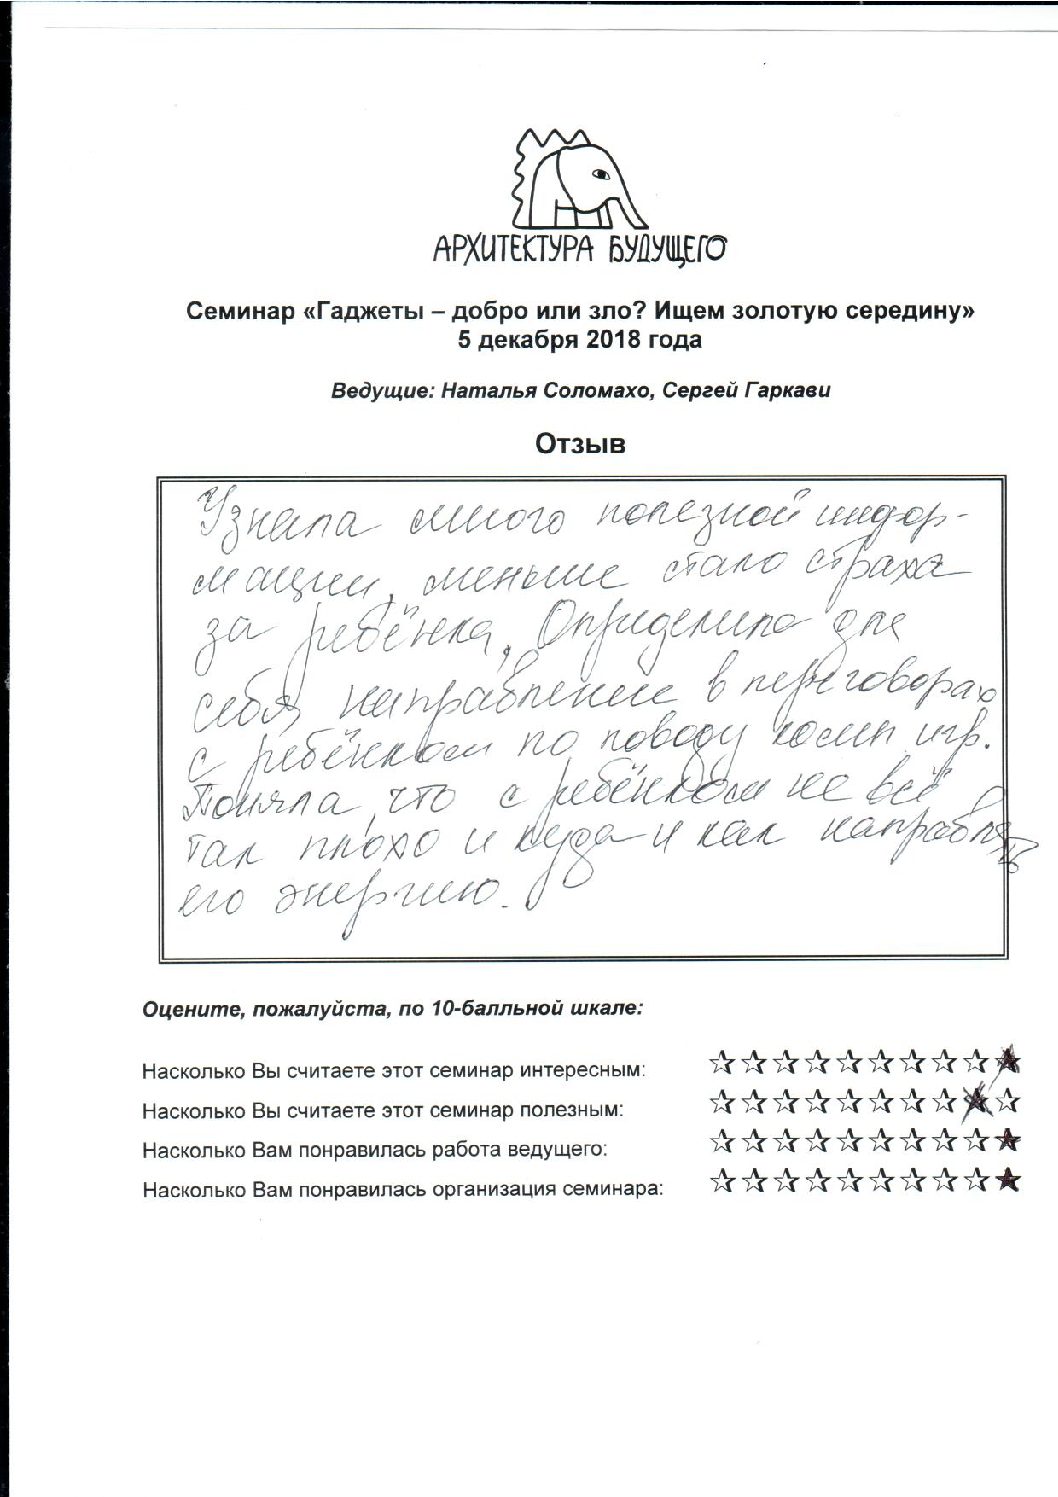 АРХИТЕКТУРА БУДУЩЕГО
Семинар «Гаджеты – добро или зло? Ищем золотую середину»
5 декабря 2018 года
Ведущие: Наталья Соломахо, Сергей Гаркави
Отзыв
Узнала много полезной инфор-
мации, меньше стало страха
за ребёнка, Определила для
себя направление в переговорах
с ребёнком по поводу комп игр.
Поняла, что с ребёнком не всё
так плохо и куда и как направлять
его энергию.
Оцените, пожалуйста, по 10-балльной шкале:
Насколько Вы считаете этот семинар интересным:
Насколько Вы считаете этот семинар полезным:
Насколько Вам понравилась работа ведущего:
Насколько Вам понравилась организация семинара: